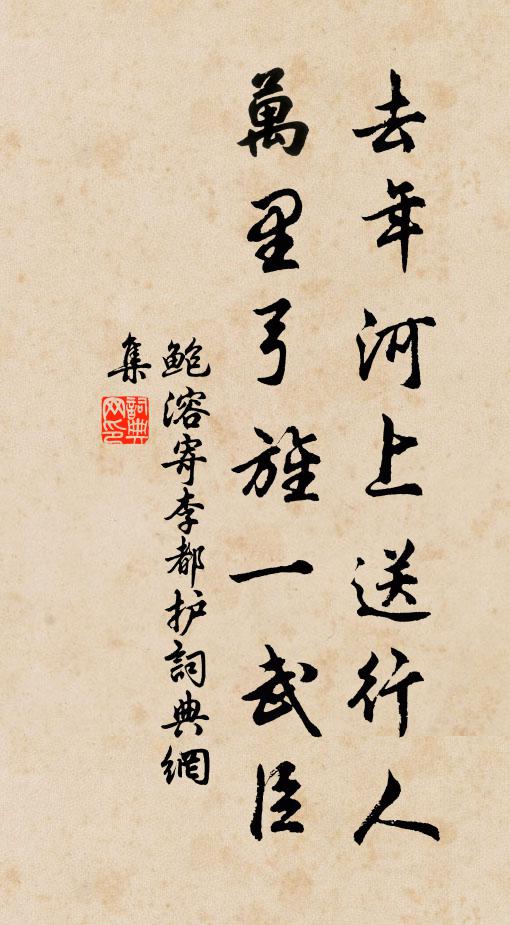 去年河上送行人
萬里弓旌一武臣
鲍溶寄李都护詞典網
集
詞典网印